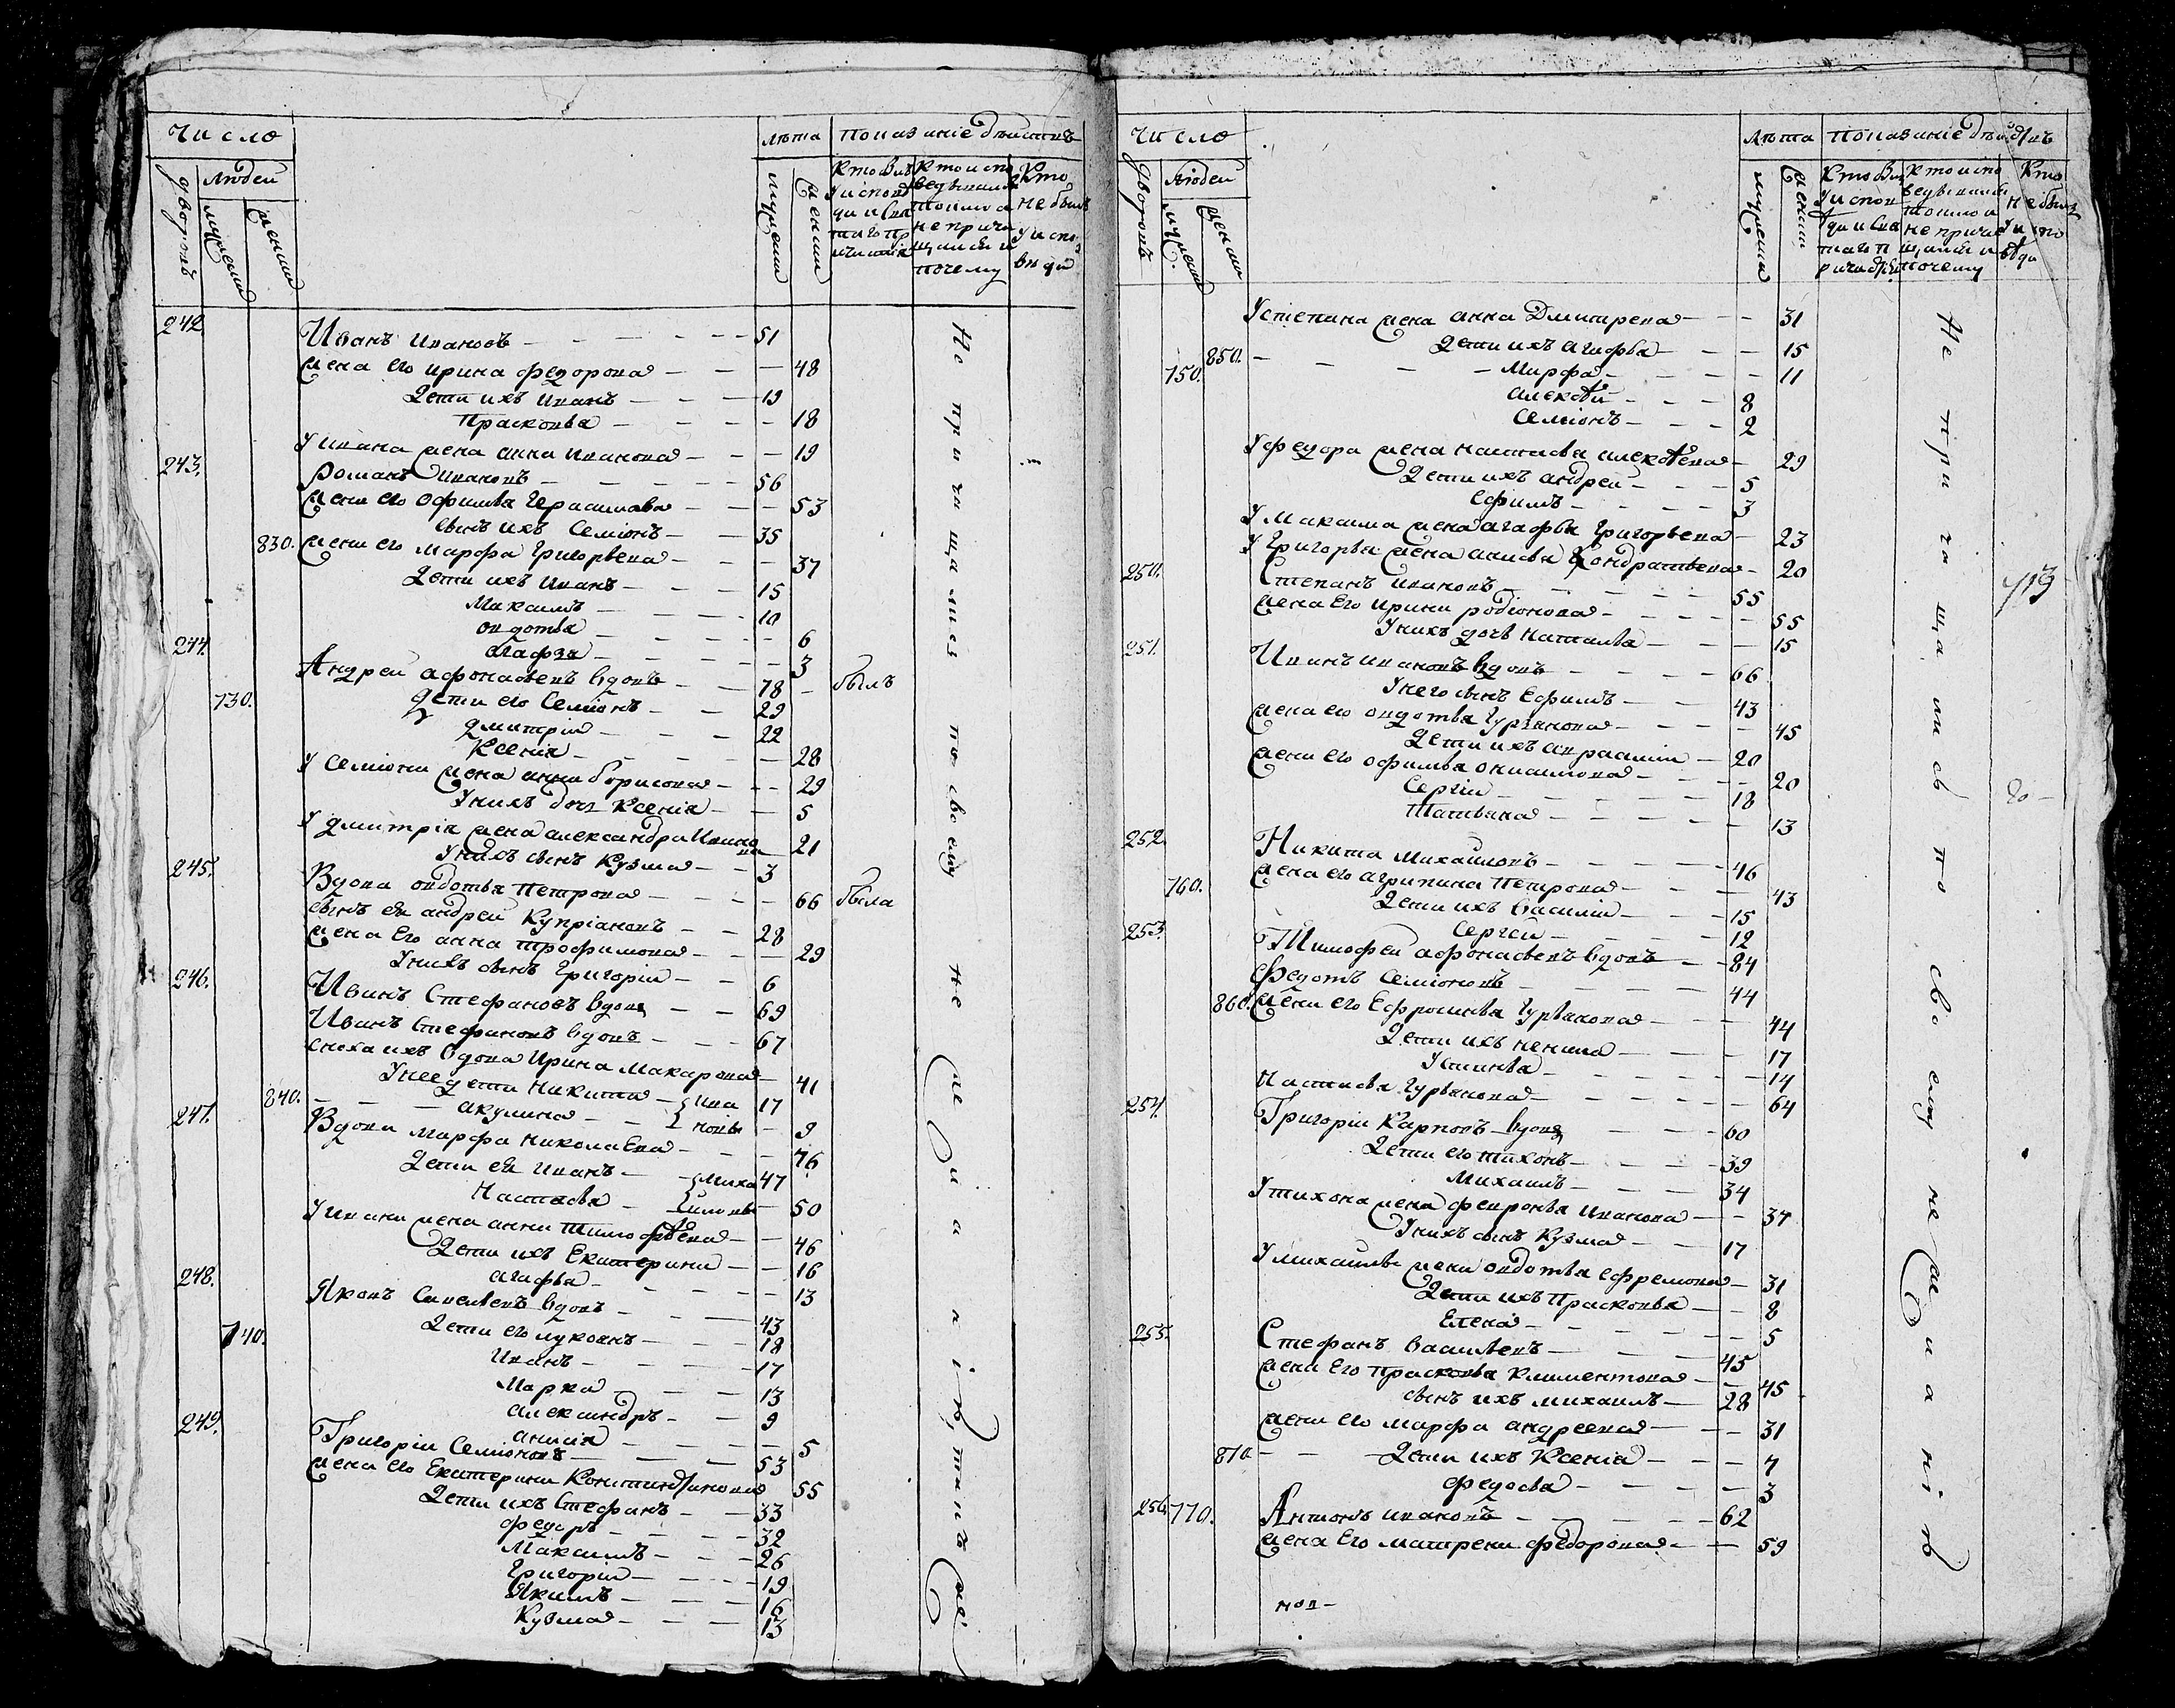 Число
лѣта показаніе дѣйствъ
дворовъ
людей
мужеска
женска
мужеска
женска
Кто былъ у исповѣди и святаго причастія
Кто исповѣдывался токмо а не причащался и почему
Кто не былъ у исповѣди
242. Иванъ Ивановъ 51
жена его Ирина Федорова 48
Дети ихъ Иванъ 19
Прасковья 18
У Ивана жена Анна Иванова 19
243. Романъ Ивановъ 56
жена его Офимья Герасимова 53
сынъ ихъ Семіонъ 35
830. жена его Марфа Григорьева 37
Дети ихъ Иванъ 15
Максимъ 10
Овдотья 6
Агафья 3
244. Андреи Афонасьевъ вдовъ 78 былъ
730. Дети его Семіонъ 29
Дмитріи 22
Ксенія 28
У Семіона жена Анна Борисова 29
У нихъ дочь Ксенія 5
У Дмитрія жена Александра Иванова 21
У нихъ сынъ Кузма 3
245. Вдова Овдотья Петрова 66 была
сынъ ея Андреи Купріановъ 28
жена его Анна Трофимова 29
У нихъ сынъ Григоріи 6
246. Иванъ Стефановъ вдовъ 69
Иванъ Стефановъ вдовъ 67
сноха ихъ вдова Ирина Макарова 41
У нее дети Никита Ива 17
840. Акулина новы 9
247. Вдова Марфа Николаева 76
Дети ея Иванъ Миха 47
Настасья иловы 50
У Ивана жена Анна Тимофѣева 46
Дети ихъ Екатерина 16
Агафья 13
248. Яковъ Савельевъ вдовъ 43
Дети его Лукоянъ 18
740. Иванъ 17
Марка 13
Александръ 9
Анисія 5
249. Григоріи Семіоновъ 53
жена его Екатерина Константинова 55
Дети ихъ Стефанъ 33
Федоръ 32
Максимъ 26
Григоріи 19
Якимъ 16
Кузма 13
Не причащались по своему не желанію
Число
лѣта показаніе дѣйствъ
дворовъ
людей
мужеска
женска
мужеска
женска
Кто былъ у исповѣди и святаго причастія
Кто исповѣдывался токмо а не причащался и почему
Кто не былъ у исповѣди
У Степана жена Анна Дмитрева 31
Дети ихъ Агафья 15
750. 850. Марфа 11
Алексѣй 8
Семіонъ 2
У Федора жена Настасья Алексѣева 29
Дети ихъ Андреи 5
Ефимъ 3
У Максима жена Агафья Григорьева 23
У Григорья жена Анисья Кондратьева 20
250. Степанъ Ивановъ 55
жена его Ирина Родіонова 55
У нихъ дочь Наталья 15
251. Иванъ Ивановъ вдовъ 66
У него сынъ Ефимъ 43
жена его Овдотья Гурьянова 45
Дети ихъ Авраамій 20
жена его Офимья Онисимова 20
Сергіи 18
Татьяна 13
252. Никита Михаиловъ 46
760. жена его Агрипина Петрова 43
Дети ихъ Василіи 15
Сергеи 12
253. Тимофеи Афонасьевъ вдовъ 84
Федотъ Семіоновъ 44
860. жена его Ефросинья Гурьянова 44
Дети ихъ Ненила 17
Устинья 14
Настасья Гурьянова 64
254. Григоріи Карповъ вдовъ 60
Дети его Тихонъ 39
Михаилъ 34
У Тихона жена Февронья Иванова 37
У нихъ сынъ Кузма 17
У Михаилы жена Овдотья Ефремова 31
Дети ихъ Прасковья 8
Елена 5
255. Стефанъ Васильевъ 45
жена его Прасковья Климентова 45
сынъ ихъ Михаилъ 28
жена его Марфа Андреева 31
870. Дети ихъ Ксенія 7
Федосья 3
256. 770. Антонъ Ивановъ 62
жена его Матрена Федорова 59
Не причащались по своему не желанію